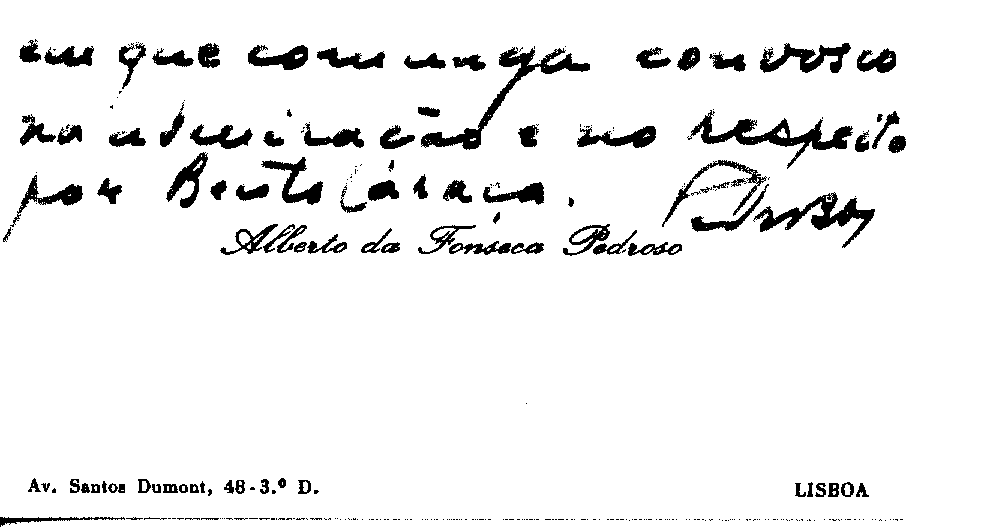 em que comunga convosco
na admiração e no respeito
por Bento Caraça.
Alberto da Fonseca Pedroso
Av. Santos Dumont, 48-3.º D.
LISBOA